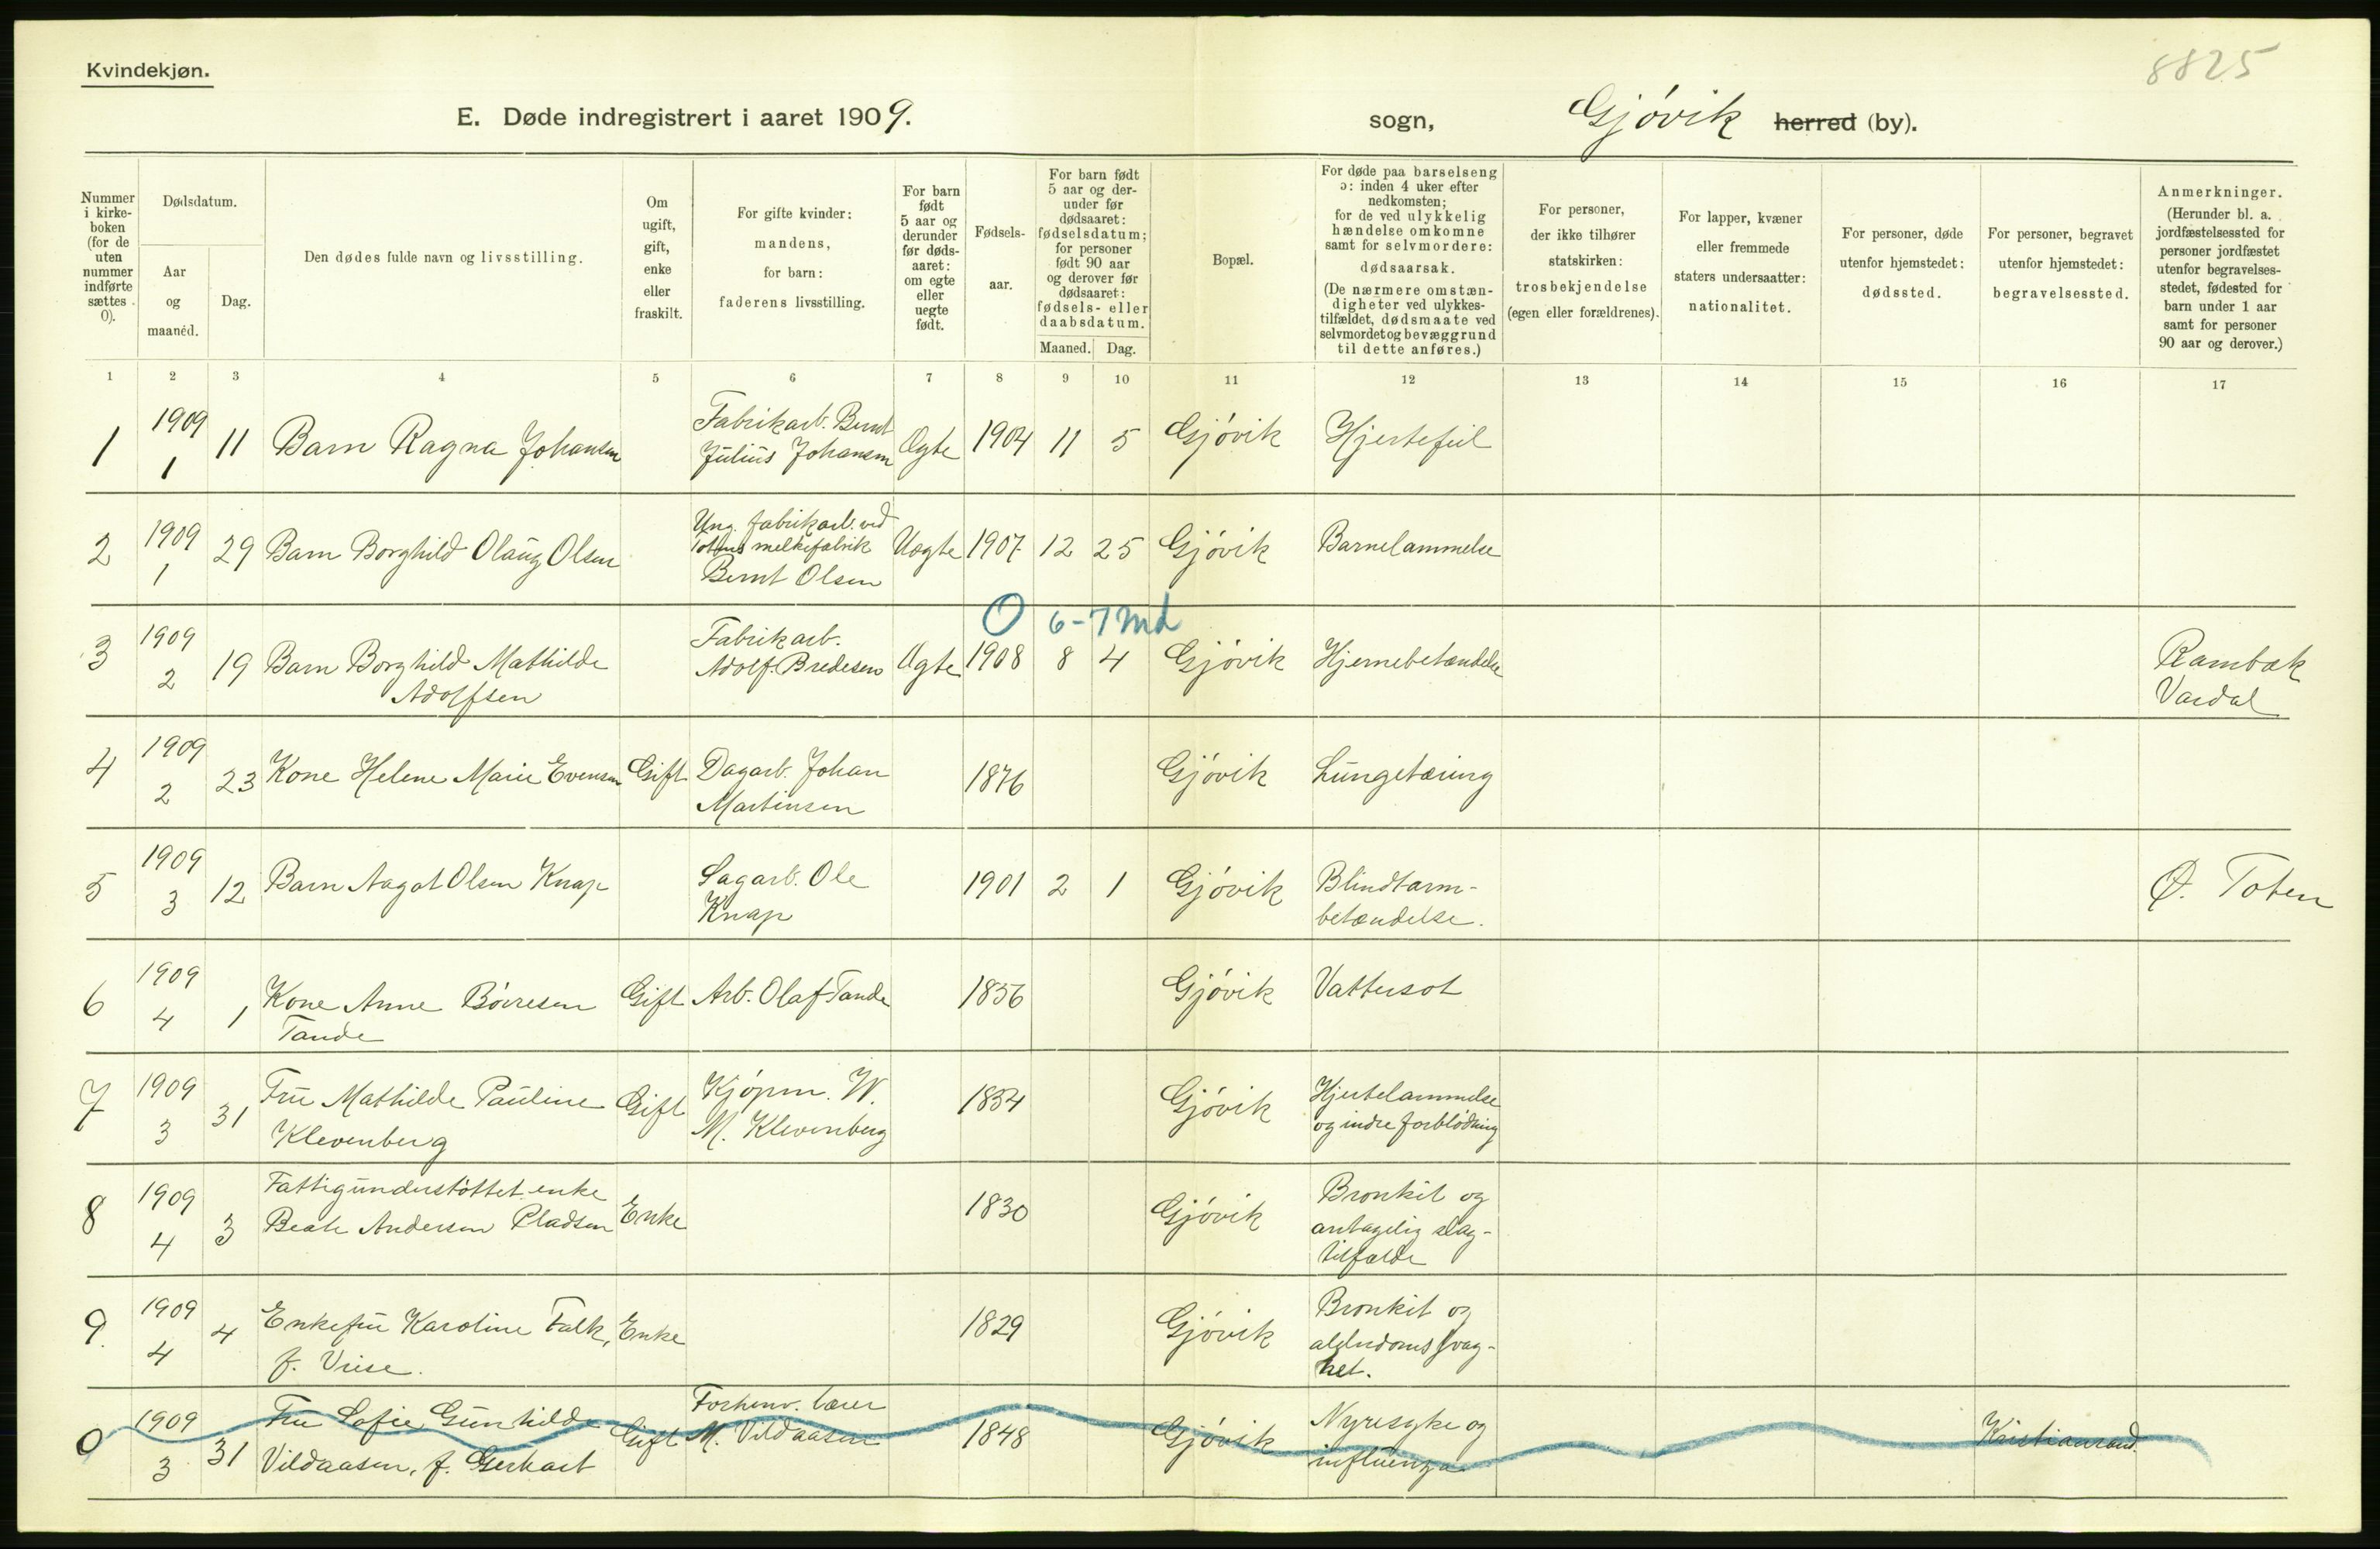 8825
Kvindekjøn.
E. Døde indregistrert i aaret 1909. sogn, Gjóvik herred (by).
Nummer i kirke-boken (for de uten nummer indførte sættes 0).
Dødsdatum.
Aar og maaned.
Dag.
Den dødes fulde navn og livsstilling.
Om ugift, gift, enke eller fraskilt.
For gifte kvinder: mandens, for barn: faderens livsstilling.
For barn født 5 aar og derunder før døds-aaret: om egte eller uegte født.
Fødsels-aar.
For barn født 5 aar og der-under før dødsaaret: fødselsdatum; for personer født 90 aar og derover før dødsaaret: fødsels- eller daabsdatum.
Maaned. Dag.
Bopæl.
For døde paa barselseng ɔ: inden 4 uker efter nedkomsten; for de ved ulykkelig hændelse omkomne samt for selvmordere: dødsaarsak. (De nærmere omstæn-digheter ved ulykkes-tilfældet, dødsmaate ved selvmordet og bevæggrund til dette anføres.)
For personer, der ikke tilhører statskirken: trosbekjendelse (egen eller forældrenes).
For lapper, kvæner eller fremmede staters undersaatter: nationalitet.
For personer, døde utenfor hjemstedet: dødssted.
For personer, begravet utenfor hjemstedet: begravelsessted.
Anmerkninger. (Herunder bl. a. jordfæstelsessted for personer jordfæstet utenfor begravelses-stedet, fødested for barn under 1 aar samt for personer 90 aar og derover.)
1 2 3 4 5 6 7 8 9 10 11 12 13 14 15 16 17
1 1909 1 11 Barn Ragna Johansen Fabrikarb. Bernt Julius Johansen Ægte 1904 11 5 Gjóvik Hjertefeil
2 1909 1 29 Barn Borghild Olaug Olsen Ung. fabrikarb. ved Totens melkefabrik Bernt Olsen Uægte 1907 12 25 Gjóvik Barnelammelse
O 6-7 md
3 1909 2 19 Barn Borghild Mathilde Adolfsen Fabrikarb. Adolf Bredesen Ægte 1908 8 4 Gjóvik Hjernebetændelse Rambæk Vardal
4 1909 2 23 Kone Helene Marie Evensen Gift Dagarb. Johan Martinsen 1876 Gjóvik Lungetæring
5 1909 3 12 Barn Aagot Olsen Knap Sagarb. Ole Knap 1901 2 1 Gjóvik Blindtarm-betændelse. Ø. Toten
6 1909 4 1 Kone Anne Bórresen Tande Gift Arb. Olaf Tande 1856 Gjóvik Vattersot
7 1909 3 31 Fru Mathilde Pauline Klevenberg Gift Kjópm. W. M. Klevenberg 1834 Gjóvik Hjertelammelse og indre forblódning
8 1909 4 3 Fattigunderstóttet enke Beate Andersen Pladsen Enke 1830 Gjóvik Bronkit og antagelig slag-tilfælde
9. 1909 4 4 Enkefru Karoline Falk, f. Wiese. Enke 1829 Gjóvik Bronkit og alderdomssvag-het.
0 1909 3 31 Fru Sofie Gunhilde Vildaasen, f. Gerhart Gift Forhenv. lærer M. Vildaasen 1848 Gjóvik Nyresyke og influenza Kristiansand.